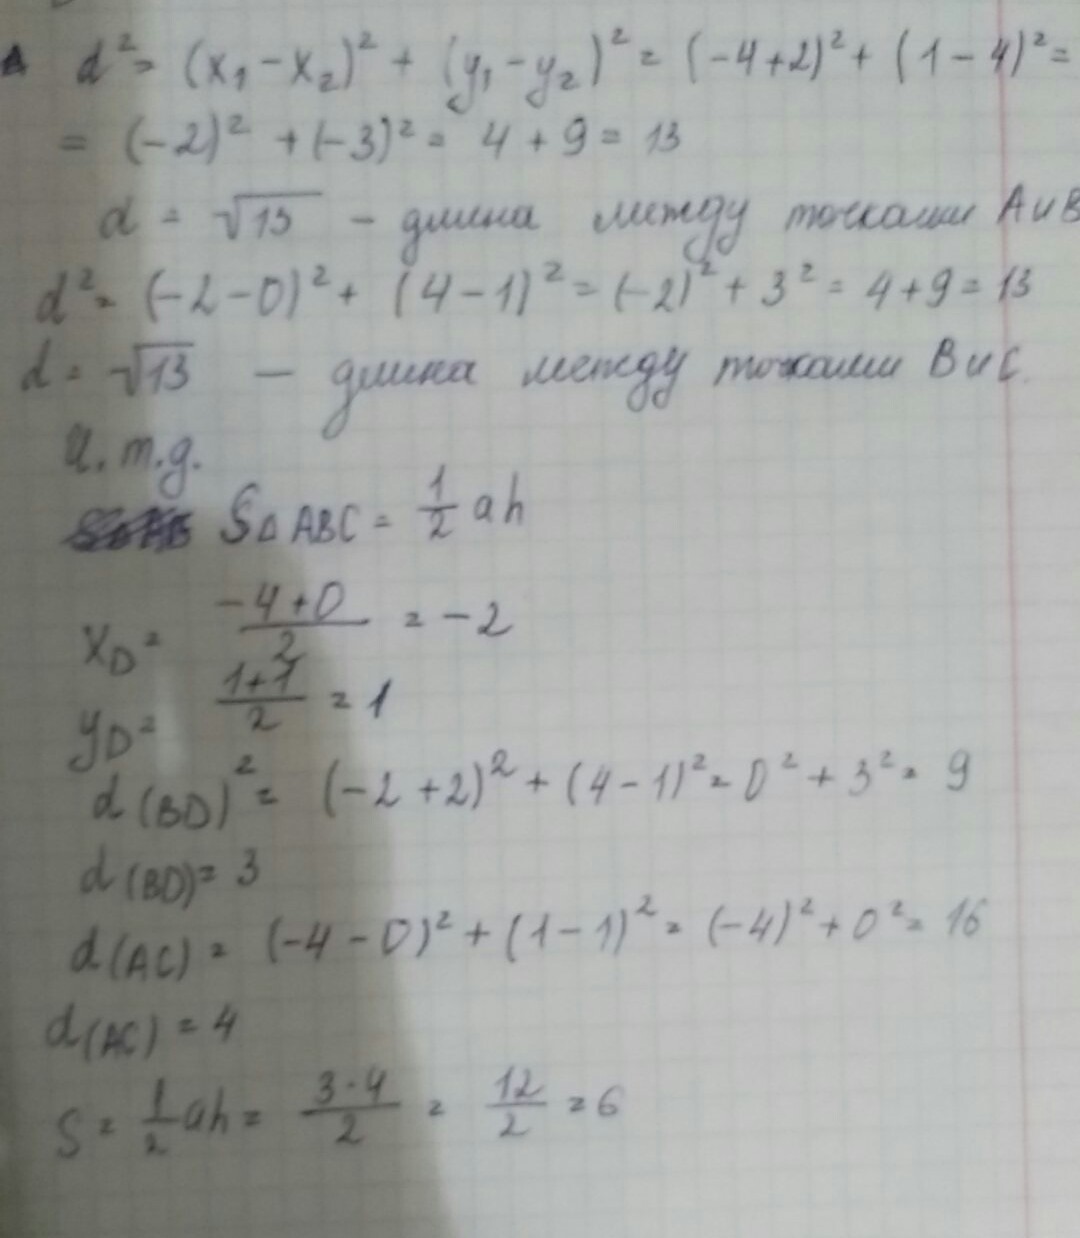 d² = (x₁ - x₂)² + (y₁ - y₂)² = (-4+2)² + (1-4)² =
= (-2)² + (-3)² = 4 + 9 = 13
d = √13 - длина между точками A и B
d² = (-2-0)² + (4-1)² = (-2)² + 3² = 4+9 = 13
d = √13 - длина между точками B и C.
и.т.д.
S△ABC = 1/2 ah
x_D = (-4+0)/2 = -2
y_D = (1+1)/2 = 1
d(BD)² = (-2+2)² + (4-1)² = 0² + 3² = 9
d(BD) = 3
d(AC) = (-4-0)² + (1-1)² = (-4)² + 0² = 16
d(AC) = 4
S = 1/2 ah = (3·4)/2 = 12/2 = 6